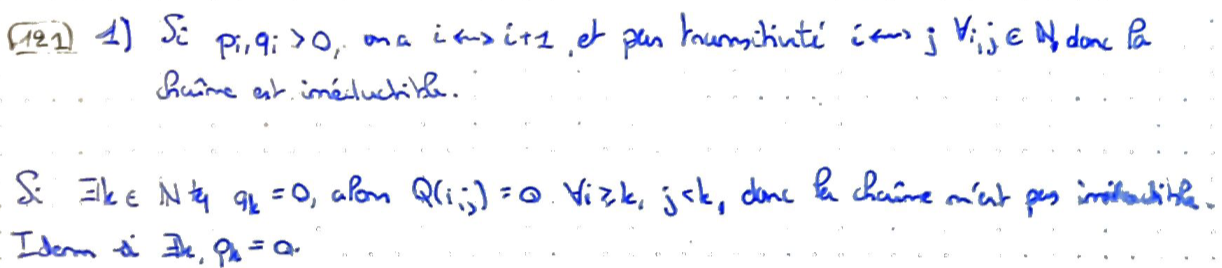 121) 1) Si pᵢ, qᵢ > 0, on a i ↔ i+1, et par transitivité i ↔ j ∀i,j ∈ ℕ, donc la
chaîne est irréductible.
Si ∃k ∈ ℕ tq qₖ = 0, alors Q(i,j) = 0 ∀i ≥ k, j < k, donc la chaîne n'est pas irréductible.
Idem si ∃k, pₖ = 0.